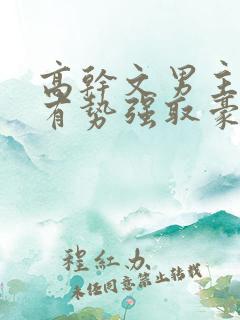 高幹文男主
有势强取豪
程红办
未经同意禁止转载